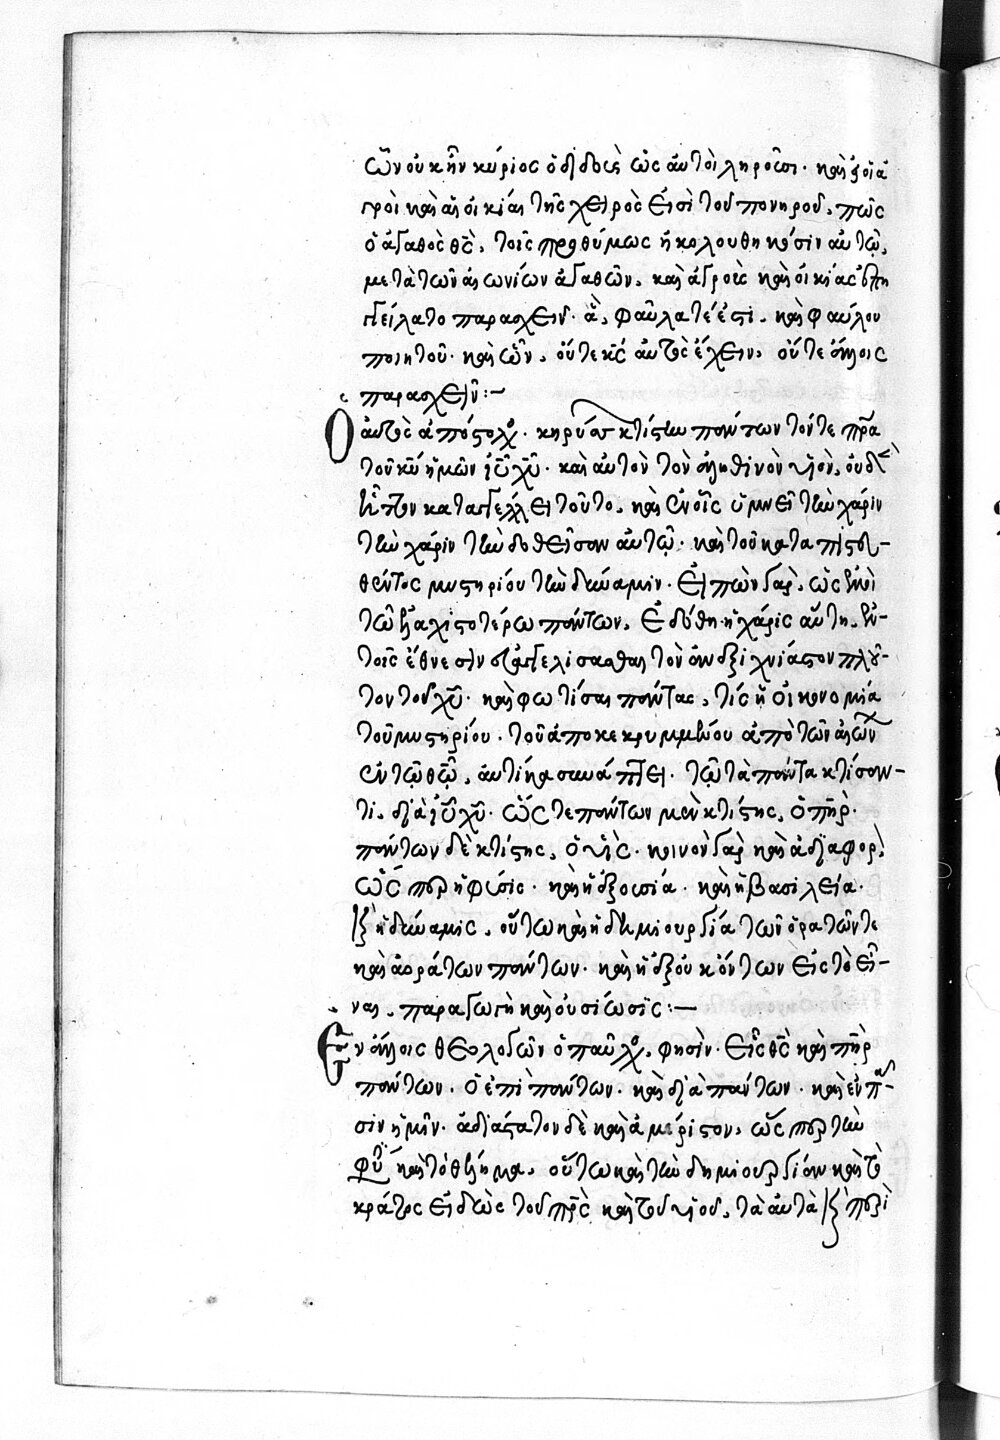 ὧν οὐκ ἦν κύριος ὁ διδοὺς ὡς αὐτοὶ ληροῦσι· καὶ εἰ οἱ ἀ
γροὶ καὶ αἱ οἰκίαι τῆς χειρός εἰσι τοῦ πονηροῦ, πῶς
ὁ ἀγαθὸς θς, τοῖς προθύμως ἠκολουθηκόσιν αὐτῷ,
μετὰ τῶν αἰωνίων ἀγαθῶν, καὶ ἀγροὺς καὶ οἰκίας ἐπη
γγείλατο παρασχεῖν· ἃ, φαῦλά τέ ἐστι, καὶ φαύλου
ποιητοῦ· καὶ ὧν, οὔτε αὐτὸς ἔχειν, οὔτε ἄλλοις
παρασχεῖν:~
Ὁ αὐτὸς ἀπόστολος· κηρύσσει κτίστην πάντων τόν τε πρα
τοῦ κυ ἡμῶν ιυ χυ· καὶ αὐτὸν τὸν ἀληθινὸν υἱὸν, οὐδὲ
ἧττον καταγγέλλει τοῦτο, καὶ ἐν οἷς ὑμνεῖ τὴν χάριν
τὴν χάριν τὴν δοθεῖσαν αὐτῷ· καὶ τοῦ καταπιστευ-
θέντος μυστηρίου τὴν δύναμιν· εἰπὼν γὰρ, ὡς ἐμοὶ
τῷ ἐλαχιστοτέρῳ πάντων, ἐδόθη ἡ χάρις αὕτη, ἐν
τοῖς ἔθνεσιν εὐαγγελίσασθαι τὸν ἀνεξιχνίαστον πλοῦ-
τον τοῦ χυ· καὶ φωτίσαι πάντας, τίς ἡ οἰκονομία
τοῦ μυστηρίου· τοῦ ἀποκεκρυμμένου ἀπὸ τῶν αἰώνων
ἐν τῷ θῷ, αὐτίκα συνάπτει· τῷ τὰ πάντα κτίσαν-
τι, διὰ ιυ χυ· ὥστε πάντων μὲν κτίστης, ὁ πηρ·
πάντων δὲ κτίστης, ὁ υἱὸς· κοινὸν γὰρ καὶ ἀδιάφορον,
ὥσπερ ἡ φύσις· καὶ ἡ ἐξουσία· καὶ ἡ βασιλεία·
καὶ ἡ δύναμις, οὕτω καὶ ἡ δημιουργία τῶν ὁρατῶν τε
καὶ ἀοράτων πάντων· καὶ ἡ ἐξ οὐκ ὄντων εἰς τὸ εἶ-
ναι, παραγωγὴ καὶ οὐσίωσις:~
Ἐν ἄλλοις θεολογῶν ὁ παῦλος, φησὶν· εἷς θς καὶ πηρ
πάντων· ὁ ἐπὶ πάντων· καὶ διὰ πάντων· καὶ ἐν πᾶ-
σιν ἡμῖν· ἀδιάστατον δὲ καὶ ἀμέριστον, ὥσπερ τὴν
καὶ τὸ θέλημα, οὕτω καὶ τὴν δημιουργίαν καὶ τὸ
κράτος εἰδὼς τοῦ πρς καὶ τοῦ υἱοῦ, τὰ αὐτὰ καὶ περὶ